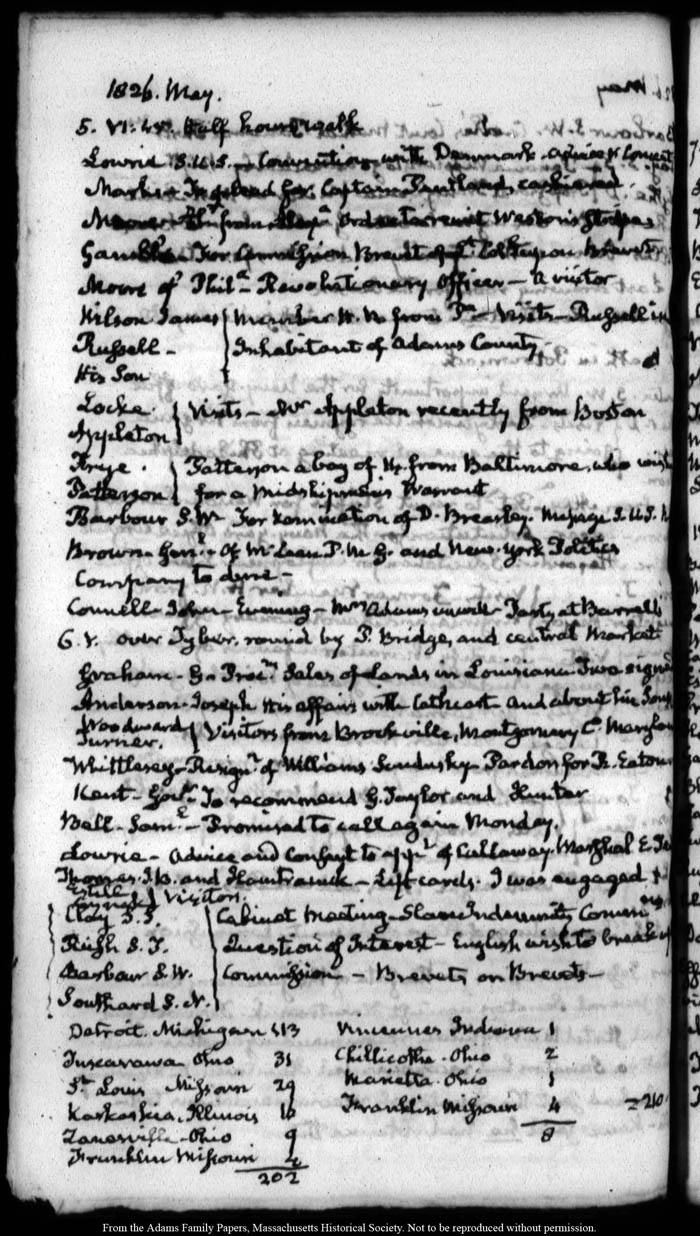 1826. May.
5. VI:45. Half hour walk
Lowrie S.U.S. Convention with Denmark. advice & Consent
Marks - In stead for Captain Pentland, cashiered.
from Alexa. Order to recruit Weston's
For Commission Brevet of Lt. Col. upon Brevet
Moore of Phila. - Revolutionary Officer - A visitor
Wilson James Member H. R. from Pa. - Visits - Russell in
Russell - Inhabitant of Adams County
His Son
Locke. Visits - Mr Appleton recently from Boston
Appleton
Frye. Patterson a boy of 14. from Baltimore, who wish
Patterson for a Midshipman's Warrant
Barbour S.W. For nomination of D. Brearley. Message S.U.S.
Brown - Genl. Of McLean P.M.G. and New-York Politics
Company to dine -
Connell - John - Evening - Mrs Adams unwell - Party at Barrell's
6. V. over Tyber, round by P. Bridge, and central Market
Graham - G. Procns. Sales of Lands in Louisiana. Two signed
Anderson - Joseph His affairs with Cathcart and about his Son
Woodward Visitors from Brookville, Montgomery Cy. Maryland
Turner.
Whittlesey - Resignn. of Williams Sandusky - Pardon for R. Eaton
Kent - Govr. To recommend G. Taylor and Hunter
Bell - Saml. - Promised to call again Monday.
Lowrie - Advice and Consent to appt. of Callaway. Marshal E.
Thomas. J.B. and Hamtramck - Left cards. I was engaged
Estill Visitors.
Clay S.S. Cabinet Meeting - Slave Indemnity Commn
Rush S.T. Question of Interest - English wish to break up
Barbour S.W. Commission - Brevets on Brevets -
Southard S.N.
Detroit. Michigan 113 Vincennes Indiana 1
Tuscarawa Ohio 31 Chillicothe. Ohio 2
St. Louis Missouri 29 Marietta. Ohio 1
Kaskaskia. Illinois 10 Franklin Missouri 4 = 210
Zanesville - Ohio 9 8
Franklin Missouri
202
From the Adams Family Papers, Massachusetts Historical Society. Not to be reproduced without permission.